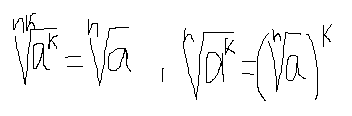 ⁿᵏ√aᵏ = ⁿ√a , ⁿ√aᵏ = (ⁿ√a)ᵏ